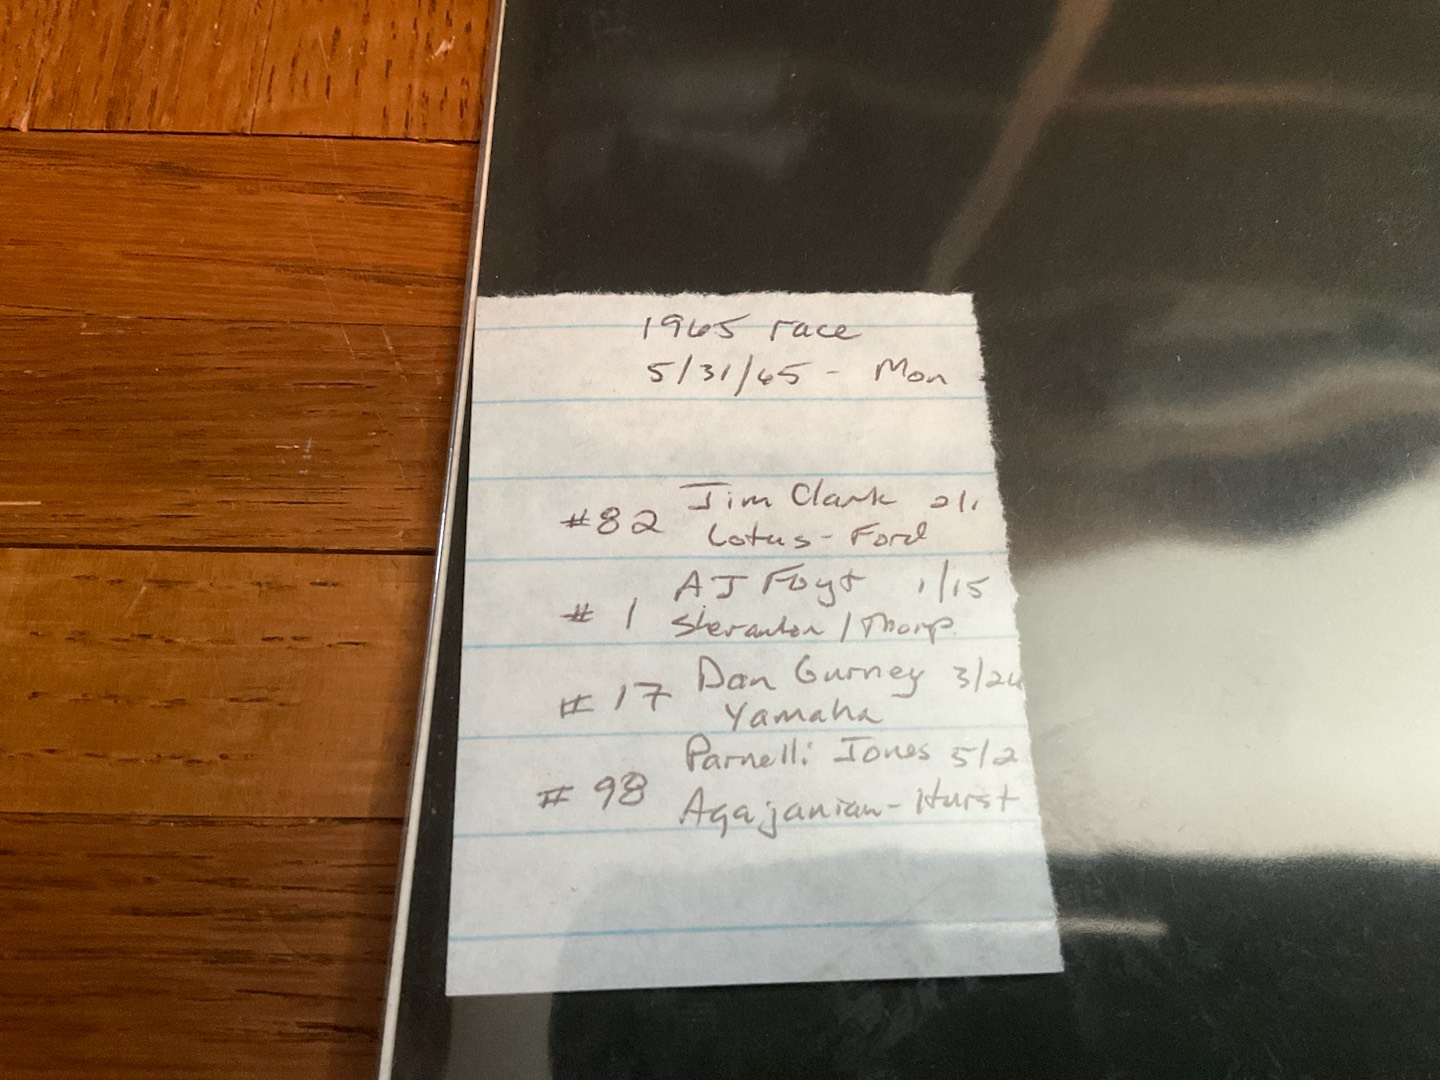 1965 race
5/31/65 - Mon
#82 Jim Clark 2/1
Lotus-Ford
#1 AJ Foyt 1/15
Sheraton/Thomp.
#17 Dan Gurney 3/26
Yamaha
#98 Parnelli Jones 5/2
Agajanian-Hurst